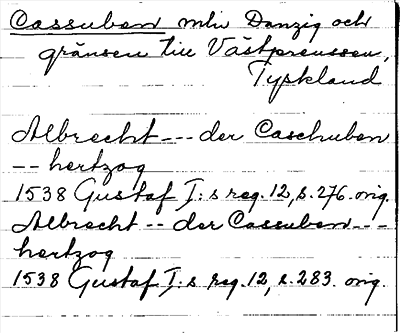 Cassuben mln Danzig och
gränsen till Västpreussen,
Tyskland
Albrecht --- der Caschuben
-- hertzog
1538 Gustaf I:s reg. 12, s. 276. orig.
Albrecht -- der Cassuben ---
hertzog
1538 Gustaf I:s reg. 12, s. 283. orig.